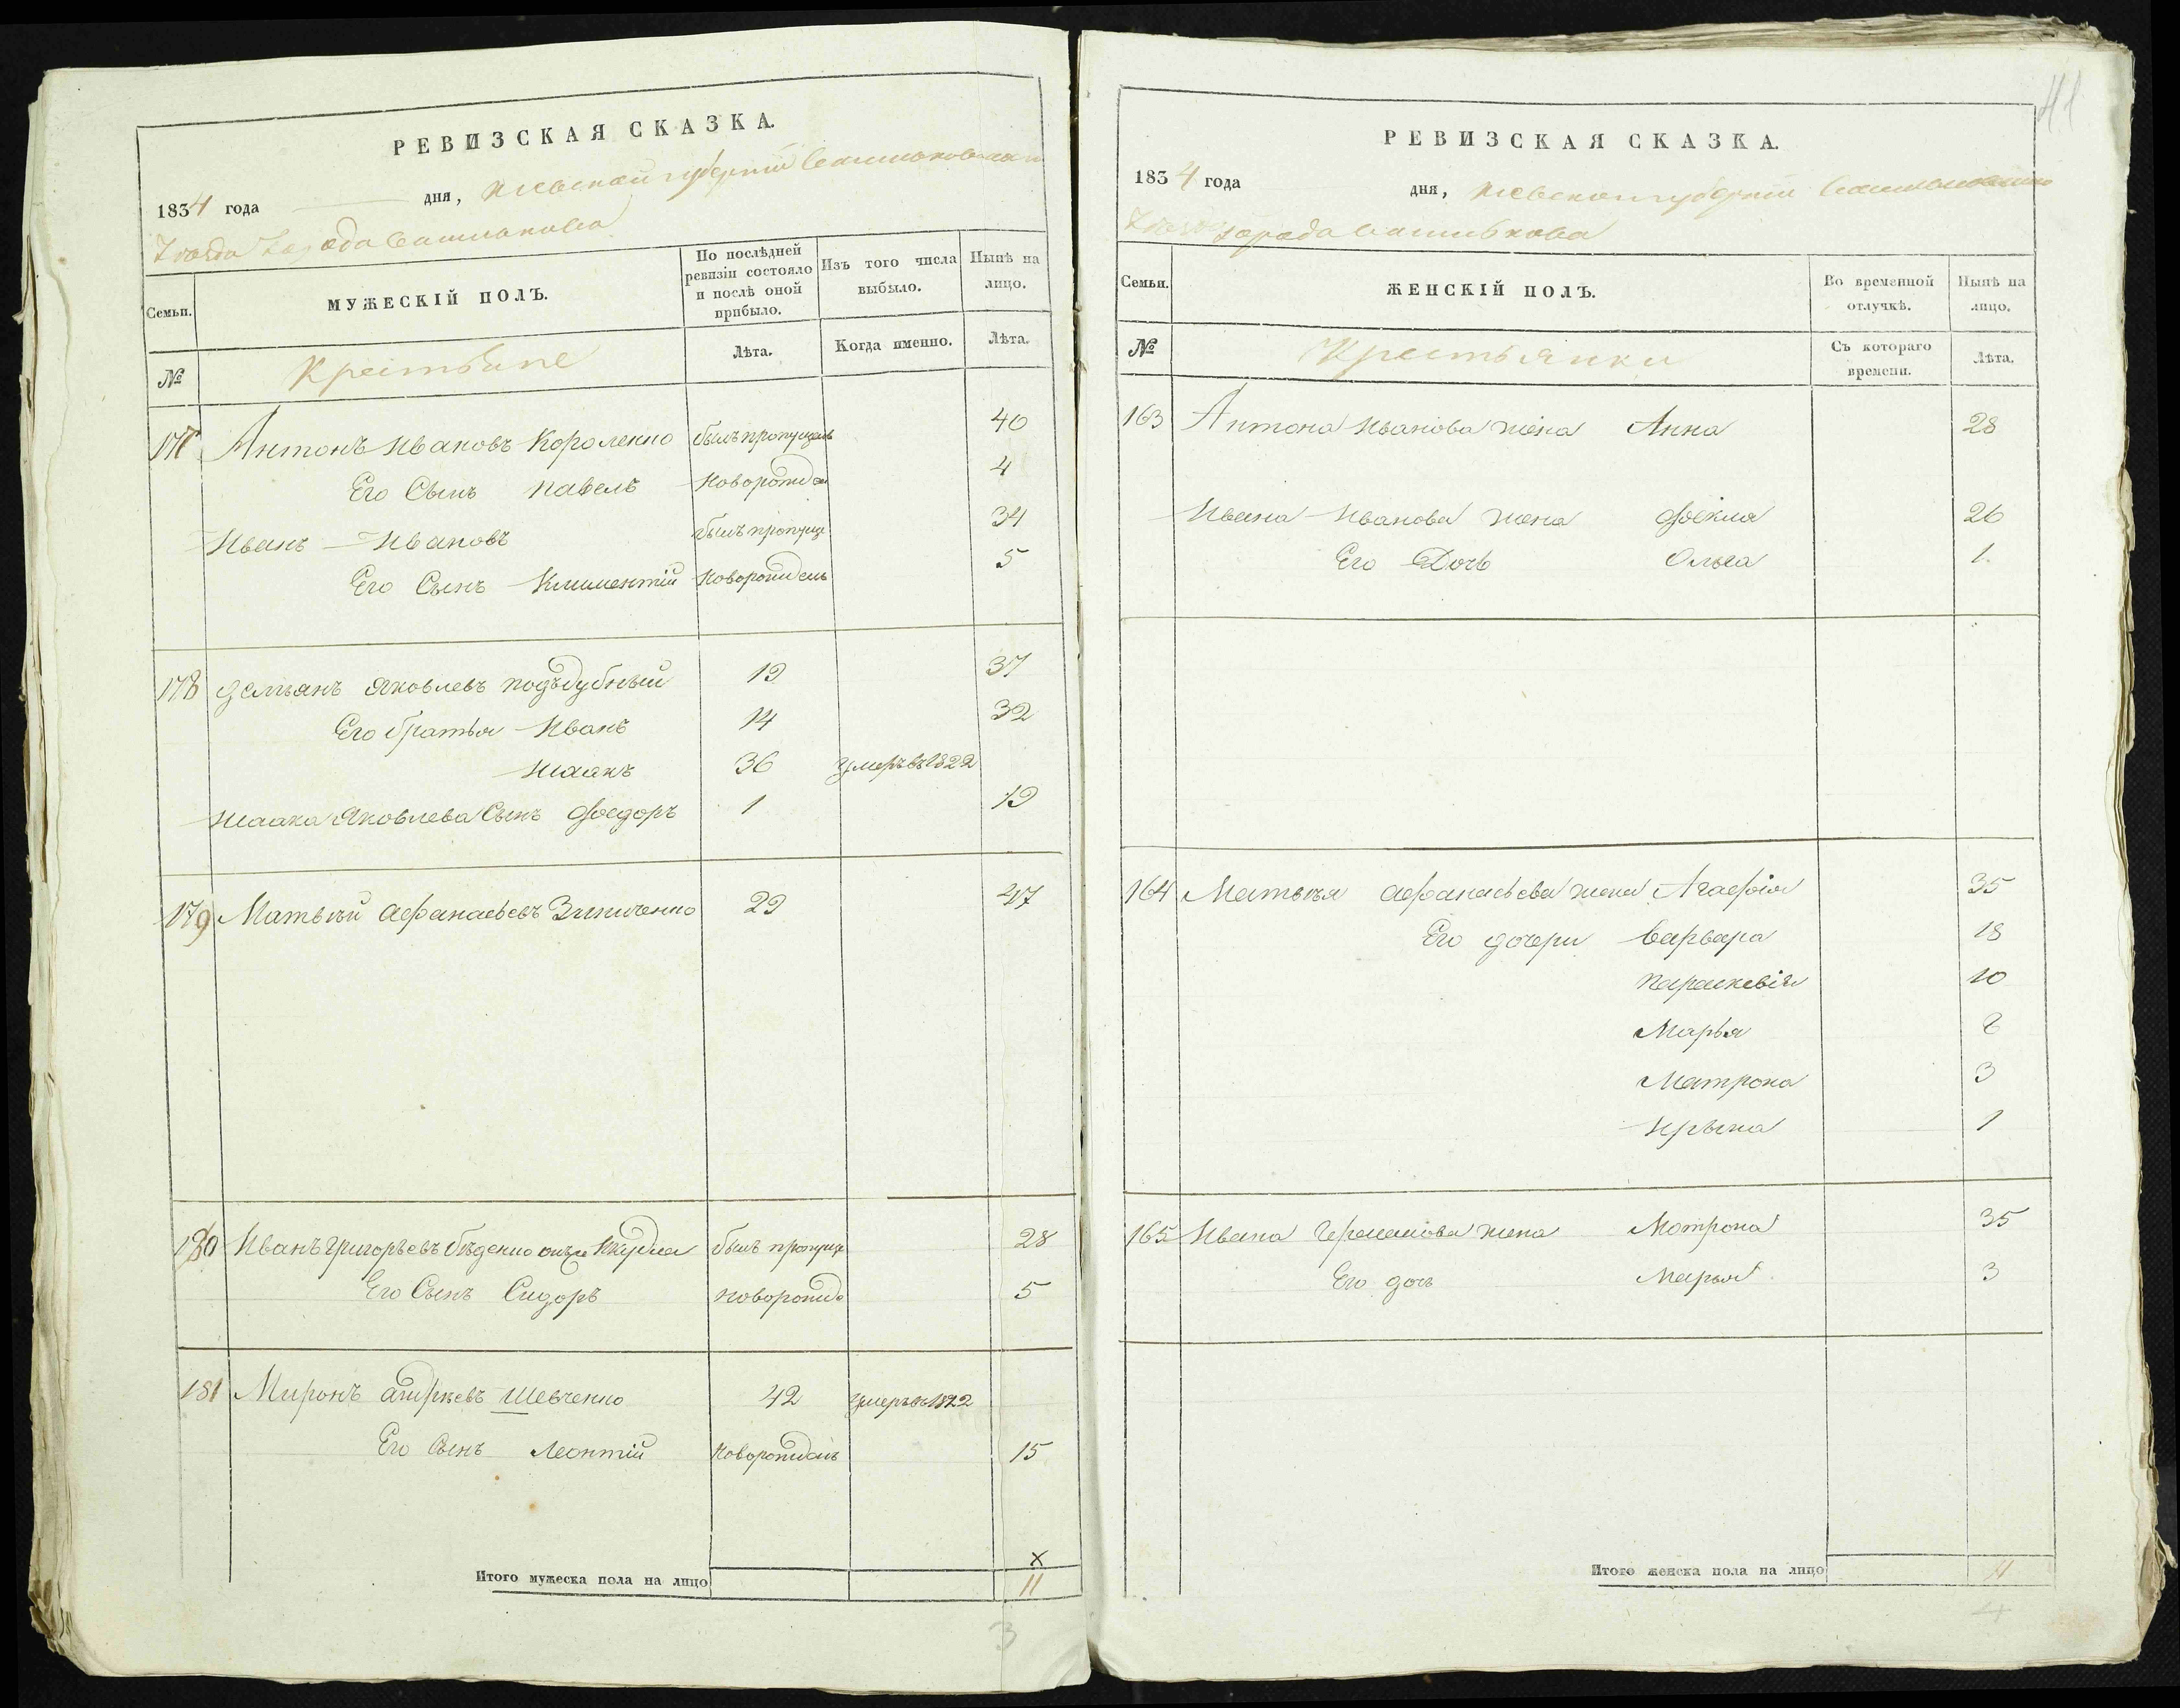 РЕВИЗСКАЯ СКАЗКА.
1834 года дня, Киевской губерніи Васильковскаго
Уѣзда Города Василькова
Семьи.
МУЖЕСКІЙ ПОЛЪ.
По послѣдней ревизіи состояло и послѣ оной прибыло.
Изъ того числа выбыло.
Нынѣ на лицо.
№
Крестьяне
Лѣта.
Когда именно.
Лѣта.
177 Антонъ Ивановъ Короленко былъ пропущенъ 40
Его Сынъ Павелъ Новорожден 4
Иванъ Ивановъ былъ пропущ 34
Его Сынъ Климентій Новорожденъ 5
178 Демьянъ Яковлевъ Подъдубный 19 37
Его братья Иванъ 14 32
Исаакъ 36 Умеръ въ 1822
Исаака Яковлева Сынъ Федоръ 1 19
179 Матвѣй Афанасьевъ Зинченко 29 47
180 Иванъ Григорьевъ Бѣденко былъ пропущ 28
Его Сынъ Сидоръ Новорожд 5
181 Миронъ Шевченко 42 Умеръ въ 1822
Его Сынъ Леонтій Новорожденъ 15
х
Итого мужеска пола на лицо 11
3
41
РЕВИЗСКАЯ СКАЗКА.
1834 года дня, Киевской губерніи Васильковскаго
Уѣзда Города Василькова
Семьи.
ЖЕНСКІЙ ПОЛЪ.
Во временной отлучкѣ.
Нынѣ на лицо.
№
Крестьянки
Съ котораго времени.
Лѣта.
163 Антона Иванова жена Анна 28
Ивана Иванова жена Фекла 26
Его Дочь Ольга 1.
164 Матвѣя Афанасьева жена Агафія 35
Его дочери Варвара 18
Параскевія 10
Марья 8
Матрона 3
Ирына 1
165 Ивана жена Мотрона 35
Его дочь Марья 3
Итого женска пола на лицо 11
4